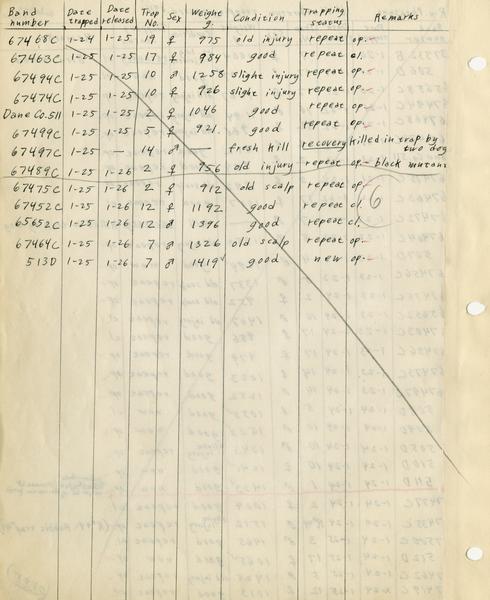 Band number Date trapped Date released Trap No. Sex Weight g. Condition Trapping status Remarks
67468C 1-24 1-25 19 ♀ 975 old injury repeat op.
67463C 1-25 1-25 17 ♀ 984 good repeat cl.
67494C 1-25 1-25 10 ♂ 1258 slight injury repeat op.
67474C 1-25 1-25 10 ♂ 926 slight injury repeat op.
Dane Co.511 1-25 1-25 2 ♀ 1046 good repeat op.
67499C 1-25 1-25 5 ♀ 921 good repeat op.
67497C 1-25 — 14 ♂ — fresh kill recovery killed in trap by two dog
67489C 1-25 1-26 2 ♀ 956 old injury repeat op. black
67475C 1-25 1-26 2 ♀ 912 old scalp repeat op.
67452C 1-25 1-26 12 ♀ 1192 good repeat cl.
65652C 1-25 1-26 12 ♂ 1396 good repeat cl.
67464C 1-25 1-26 7 ♂ 1326 old scalp repeat op.
513D 1-25 1-26 7 ♂ 1419 good new op.
6